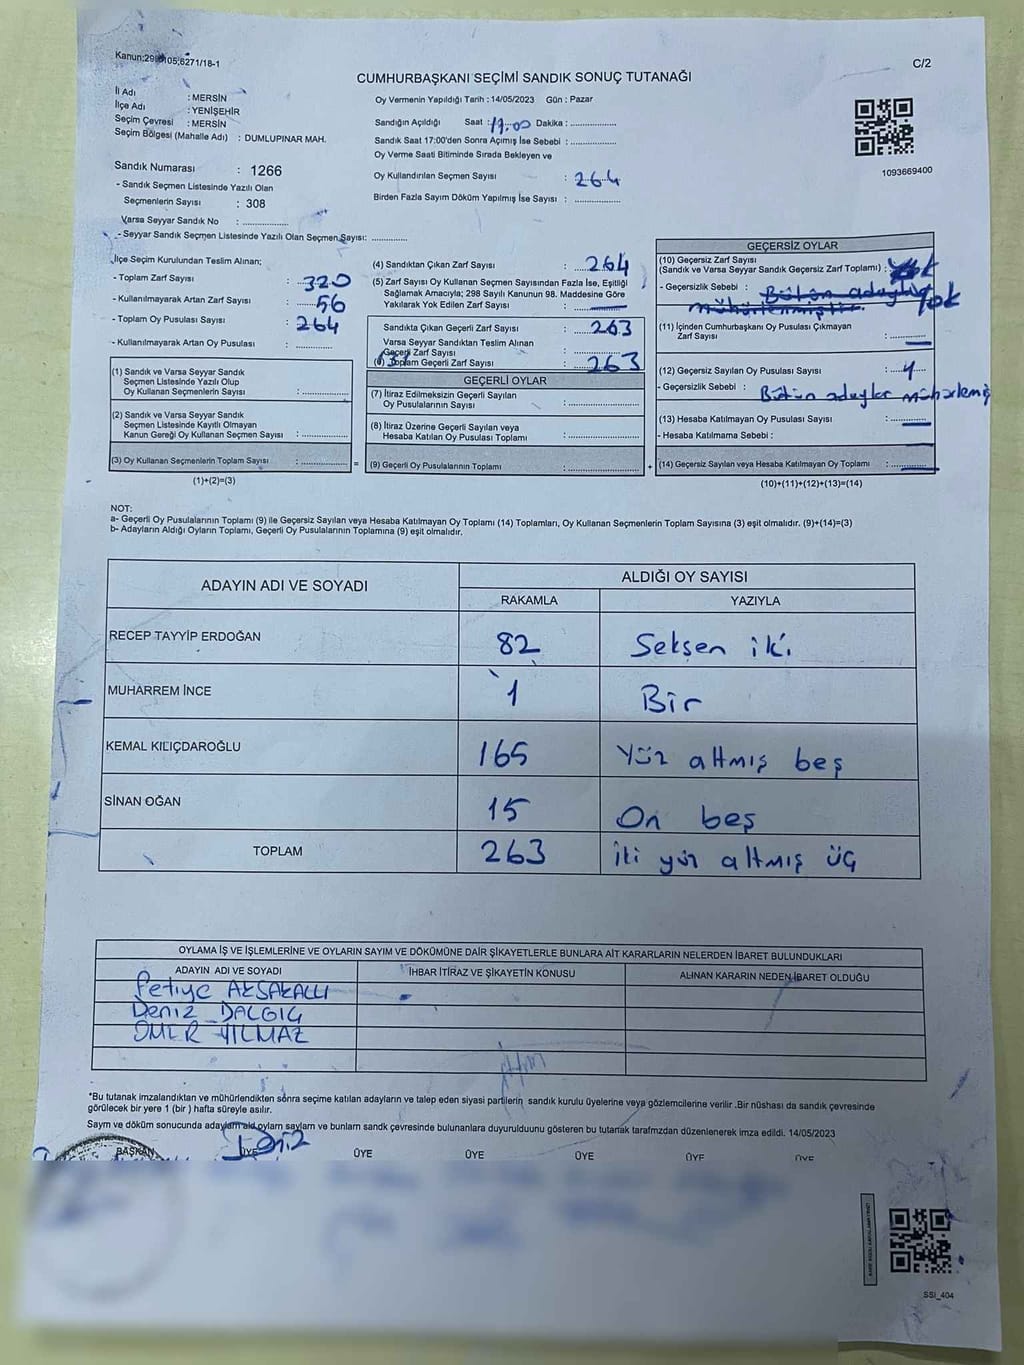 C/2
CUMHURBAŞKANI SEÇİMİ SANDIK SONUÇ TUTANAĞI
İl Adı : MERSİN
İlçe Adı : YENİŞEHİR
Seçim Çevresi : MERSİN
Seçim Bölgesi (Mahalle Adı) : DUMLUPINAR MAH.
Oy Vermenin Yapıldığı Tarih : 14/05/2023 Gün : Pazar
Sandığın Açıldığı Saat : 17.00 Dakika : ....................
Sandık Saat 17:00'den Sonra Açımış İse Sebebi : ....................
Oy Verme Saati Bitiminde Sırada Bekleyen ve
Oy Kullandırılan Seçmen Sayısı : 264
Birden Fazla Sayım Döküm Yapılmış İse Sayısı : ....................
1093669400
Sandık Numarası : 1266
- Sandık Seçmen Listesinde Yazılı Olan
Seçmenlerin Sayısı : 308
Varsa Seyyar Sandık No : ....................
- Seyyar Sandık Seçmen Listesinde Yazılı Olan Seçmen Sayısı: ...............
İlçe Seçim Kurulundan Teslim Alınan;
- Toplam Zarf Sayısı : 320
- Kullanılmayarak Artan Zarf Sayısı : 56
- Toplam Oy Pusulası Sayısı : 264
- Kullanılmayarak Artan Oy Pusulası : ...............
(1) Sandık ve Varsa Seyyar Sandık
Seçmen Listesinde Yazılı Olup
Oy Kullanan Seçmenlerin Sayısı : ...............
(2) Sandık ve Varsa Seyyar Sandık
Seçmen Listesinde Kayıtlı Olmayan
Kanun Gereği Oy Kullanan Seçmen Sayısı : ...............
(3) Oy Kullanan Seçmenlerin Toplam Sayısı : ...............
(1)+(2)=(3)
=
(4) Sandıktan Çıkan Zarf Sayısı : 264
(5) Zarf Sayısı Oy Kullanan Seçmen Sayısından Fazla İse, Eşitliği
Sağlamak Amacıyla; 298 Sayılı Kanunun 98. Maddesine Göre
Yakılarak Yok Edilen Zarf Sayısı :
Sandıkta Çıkan Geçerli Zarf Sayısı : 263
Varsa Seyyar Sandıktan Teslim Alınan
Geçerli Zarf Sayısı : ...............
Toplam Geçerli Zarf Sayısı : 263
GEÇERLİ OYLAR
(7) İtiraz Edilmeksizin Geçerli Sayılan
Oy Pusulalarının Sayısı : ...............
(8) İtiraz Üzerine Geçerli Sayılan veya
Hesaba Katılan Oy Pusulası Toplamı : ...............
(9) Geçerli Oy Pusulalarının Toplamı : ...............
+
GEÇERSİZ OYLAR
(10) Geçersiz Zarf Sayısı
(Sandık ve Varsa Seyyar Sandık Geçersiz Zarf Toplamı) :
- Geçersizlik Sebebi : Bütün adaylar yok
mühürlenmiştir.
(11) İçinden Cumhurbaşkanı Oy Pusulası Çıkmayan
Zarf Sayısı :
(12) Geçersiz Sayılan Oy Pusulası Sayısı : 1
- Geçersizlik Sebebi : Bütün adaylar mühürlemiş
(13) Hesaba Katılmayan Oy Pusulası Sayısı :
- Hesaba Katılmama Sebebi :
(14) Geçersiz Sayılan veya Hesaba Katılmayan Oy Toplamı :
(10)+(11)+(12)+(13)=(14)
NOT:
a- Geçerli Oy Pusulalarının Toplamı (9) ile Geçersiz Sayılan veya Hesaba Katılmayan Oy Toplamı (14) Toplamları, Oy Kullanan Seçmenlerin Toplam Sayısına (3) eşit olmalıdır. (9)+(14)=(3)
b- Adayların Aldığı Oyların Toplamı, Geçerli Oy Pusulalarının Toplamına (9) eşit olmalıdır.
ADAYIN ADI VE SOYADI ALDIĞI OY SAYISI
RAKAMLA YAZIYLA
RECEP TAYYİP ERDOĞAN 82 Seksen iki
MUHARREM İNCE 1 Bir
KEMAL KILIÇDAROĞLU 165 Yüz altmış beş
SİNAN OĞAN 15 On beş
TOPLAM 263 iki yüz altmış üç
OYLAMA İŞ VE İŞLEMLERİNE VE OYLARIN SAYIM VE DÖKÜMÜNE DAİR ŞİKAYETLERLE BUNLARA AİT KARARLARIN NELERDEN İBARET BULUNDUKLARI
ADAYIN ADI VE SOYADI İHBAR İTİRAZ VE ŞİKAYETİN KONUSU ALINAN KARARIN NEDEN İBARET OLDUĞU
Fetiye AKSAKALLI
Deniz DALGIÇ
ÖMER YILMAZ
*Bu tutanak imzalandıktan ve mühürlendikten sonra seçime katılan adayların ve talep eden siyasi partilerin sandık kurulu üyelerine veya gözlemcilerine verilir .Bir nüshası da sandık çevresinde
görülecek bir yere 1 (bir ) hafta süreyle asılır.
14/05/2023
BAŞKAN ÜYE ÜYE ÜYE ÜYE ÜYE ÜYE
Deniz
SSI_404